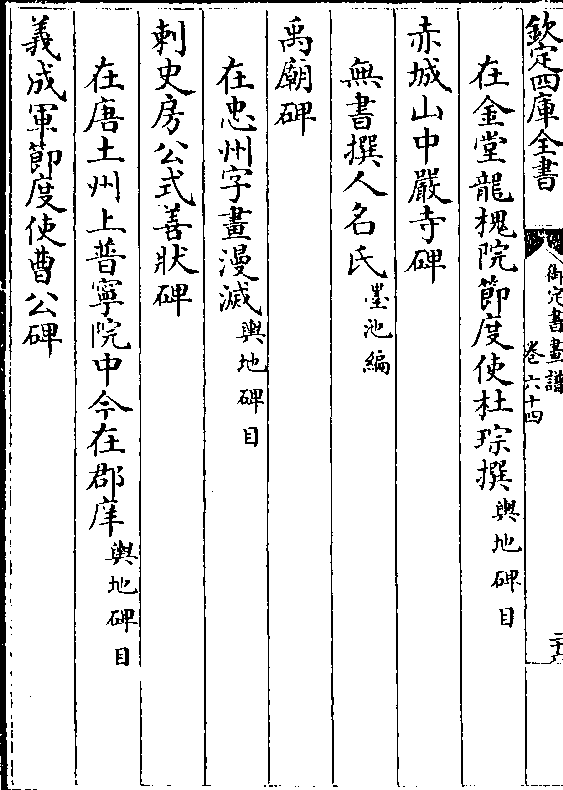 欽定四庫全書
御定書畫譜
卷六十四
在金堂龍槐院節度使杜琮撰輿地碑目
赤城山中嚴寺碑
無書撰人名氏墨池編
禹廟碑
在忠州字畫漫滅輿地碑目
刺史房公式善狀碑
在唐土州上普寧院中今在郡庠輿地碑目
義成軍節度使曹公碑